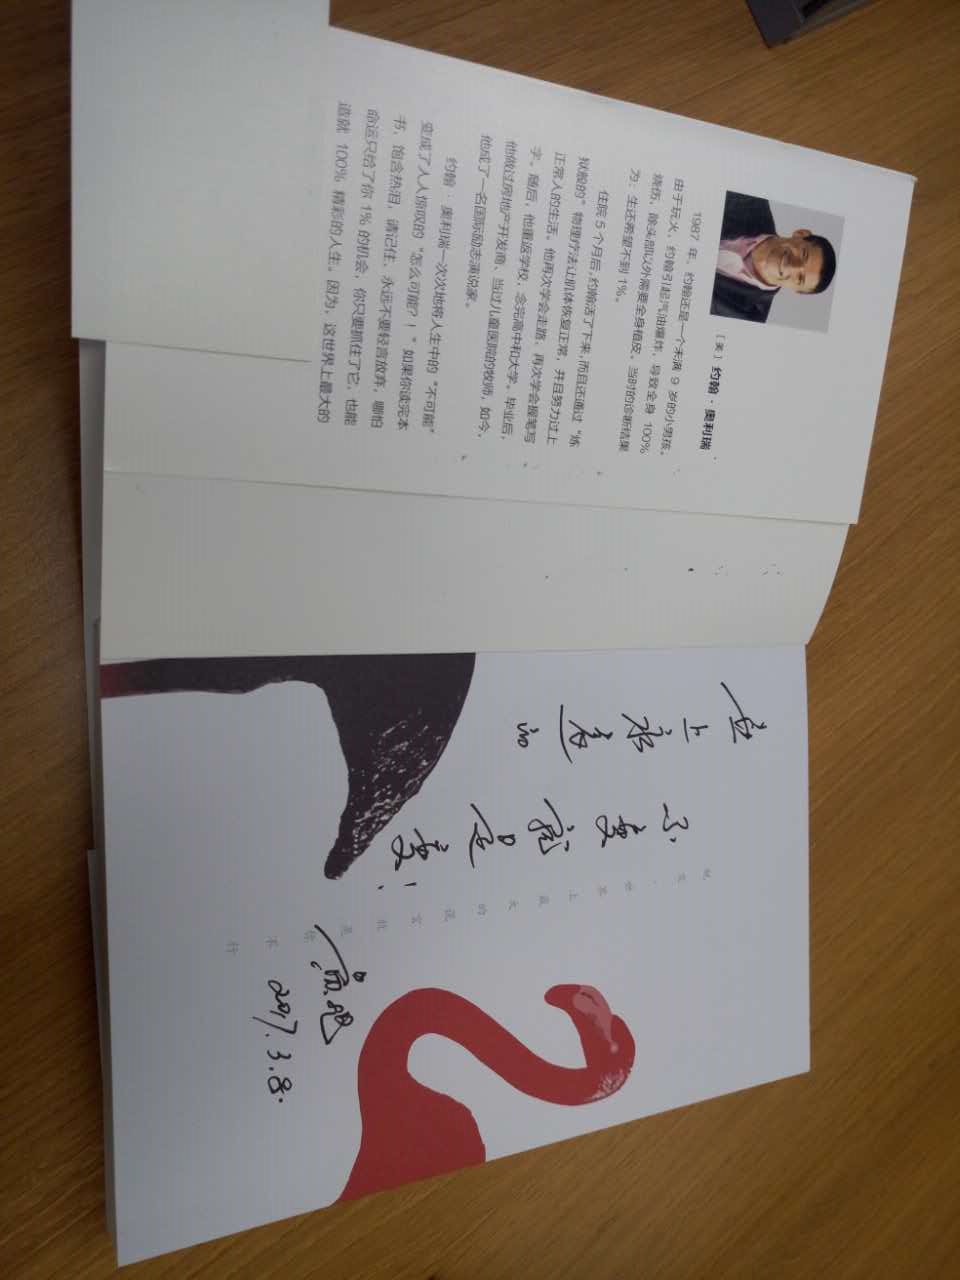 [美] 约翰·奥利瑞
1987 年，约翰还是一个未满 9 岁的小男孩。
由于玩火，约翰引起汽油爆炸，导致全身 100%
烧伤，除头部以外需要全身植皮。当时的诊断结果
为：生还希望不到 1%。
住院 5 个月后，约翰活了下来，而且还通过“炼
狱般的”物理疗法让肌体恢复正常，并且努力过上
正常人的生活。他再次学会走路、再次学会握笔写
字。随后，他重返学校，念完高中和大学。毕业后，
他做过房地产开发商、当过儿童医院的牧师，如今，
他成了一名国际励志演说家。
约翰·奥利瑞一次次地将人生中的“不可能”
变成了人人惊叹的“怎么可能？！”如果你读完本
书，饱含热泪，请记住，永远不要轻言放弃，哪怕
命运只给了你 1% 的机会，你只要抓住了它，也能
造就 100% 精彩的人生。因为，这世界上最大的
世上永远的
不变就是变！
世界上最大的谎言就是你不行
2017.3.8.